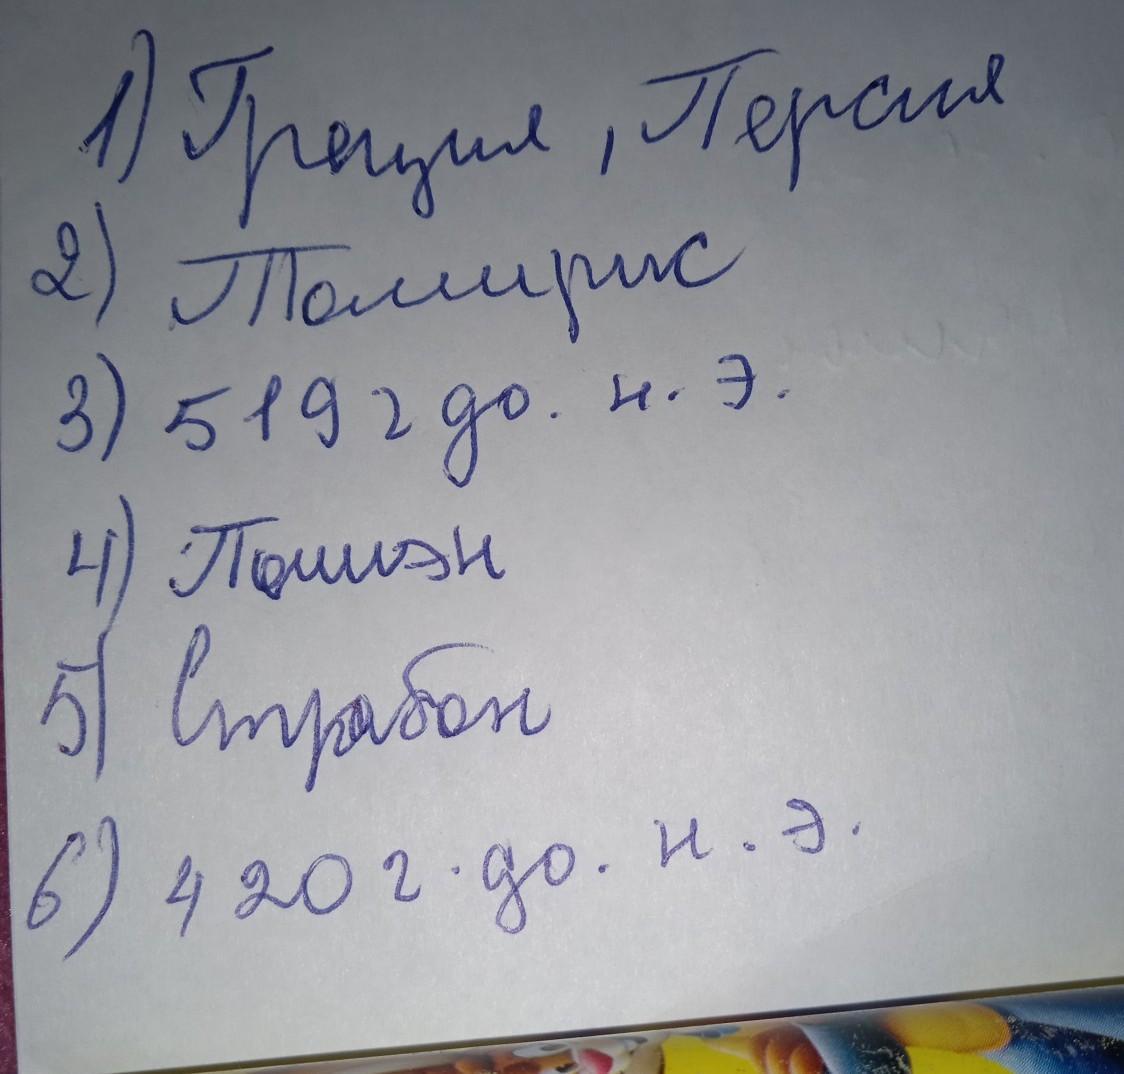 1) Греция, Персия
2) Томирис
3) 519 г до. н. э.
4) Полиэн
5) Страбон
6) 420 г. до. н. э.